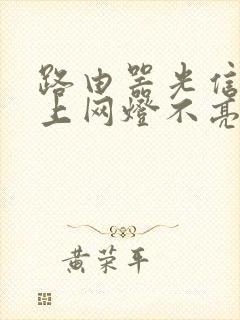 路由器光信
上网燈不亮
黄荣平